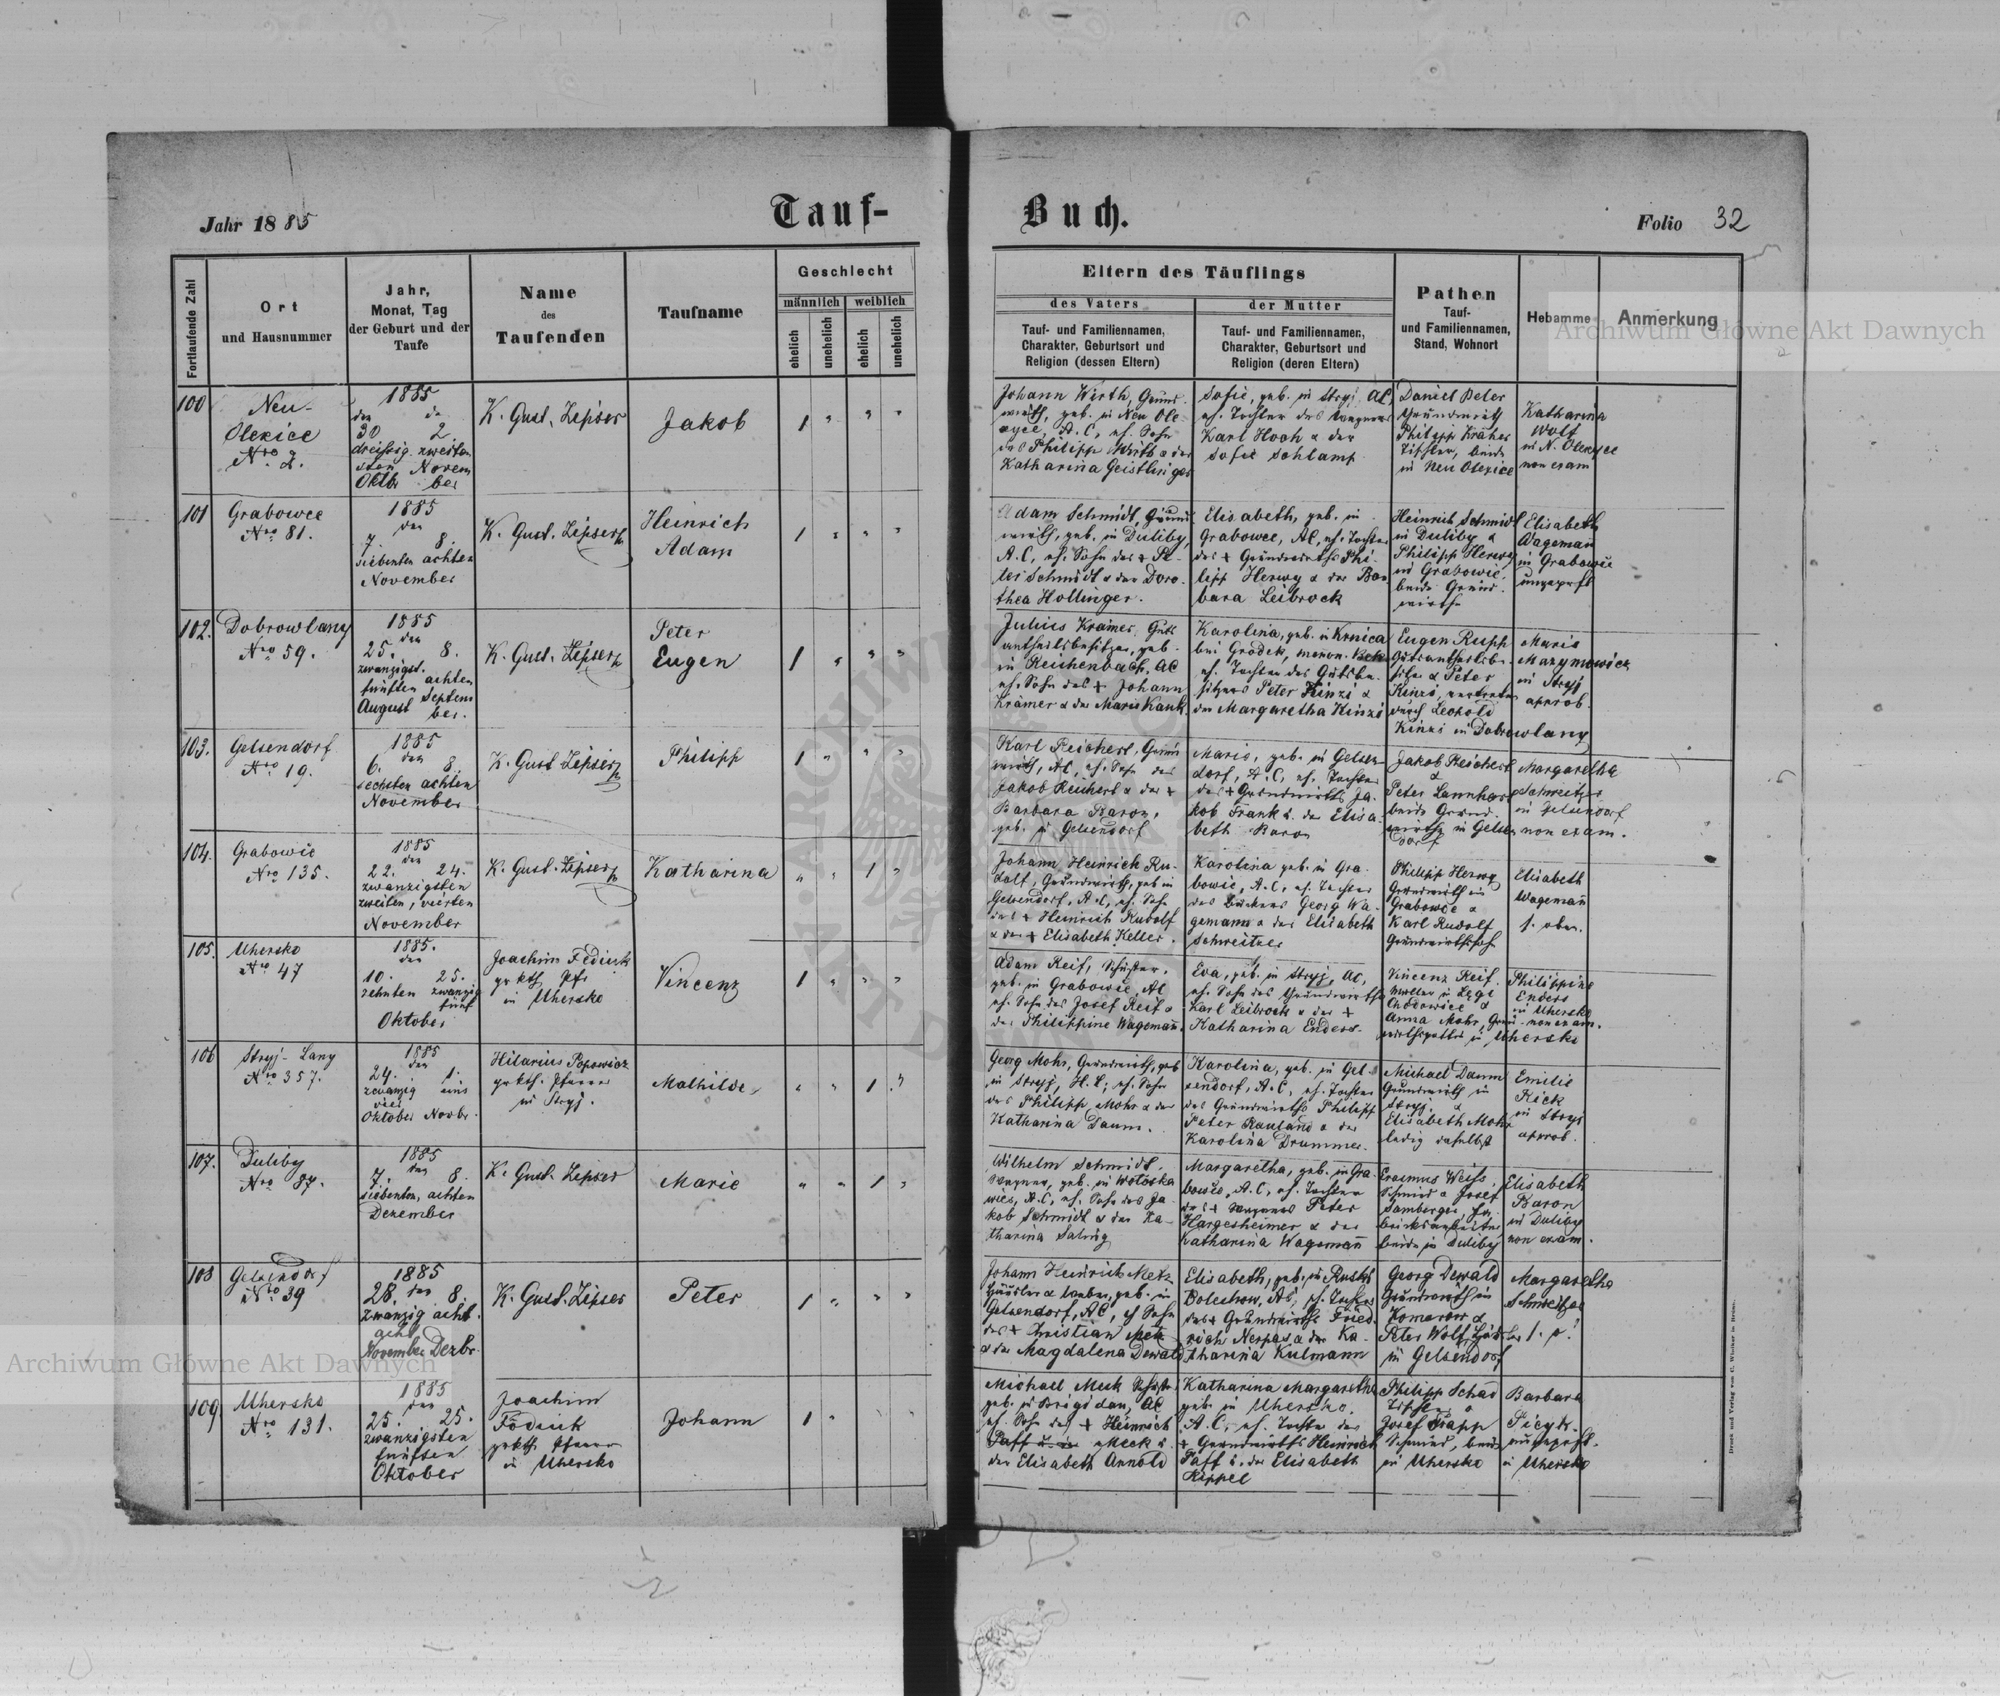 Jahr 1885
Tauf-
Buch.
Folio 32
Fortlaufende Zahl
Ort
und Hausnummer
Jahr,
Monat, Tag
der Geburt und der
Taufe
Name
des
Taufenden
Taufname
Geschlecht
männlich weiblich
ehelich
unehelich
ehelich
unehelich
Eltern des Täuflings
des Vaters
Tauf- und Familiennamen,
Charakter, Geburtsort und
Religion (dessen Eltern)
der Mutter
Tauf- und Familiennamen,
Charakter, Geburtsort und
Religion (deren Eltern)
Pathen
Tauf-
und Familiennamen,
Stand, Wohnort
Hebamme
Anmerkung
Archiwum Główne Akt Dawnych
100
Neu-
Olexice
Nro 2.
1885
den
30 2
dreißig zweiten
sten Novem
Oktbr ber
K. Gust. Lipser
Jakob
1 " " "
Johann Wirth, Grund
wirth, geb. in Neu Ole-
xice, A.C, eh. Sohn
des Philipp Wirth & der
Katharina Geistlinger
Sofie, geb. in Stryj, AC,
eh. Tochter des Wagners
Karl Hoch & der
Sofie Schlamp
Daniel Peter
Grundwirth
Philipp Krämer
Tischler, beide
in Neu Olexice
Katharina
Wolf
in N. Olexice
non exam
101
Grabowce
Nro 81.
1885
den
7. 8.
siebenten achten
November
K. Gust. Lipser
Heinrich
Adam
1 " " "
Adam Schmidt Grund
wirth, geb. in Duliby,
A.C, eh. Sohn des + Pe-
ter Schmidt & der Doro-
thea Hollinger.
Elisabeth, geb. in
Grabowce, AC, eh. Tochter
des + Grundwirths Phi-
lipp Herwy & der Bar
bara Leibrock
Heinrich Schmidt
in Duliby &
Philipp Herwy
in Grabowce,
beide Grund-
wirthe
Elisabeth
Wageman̄
in Grabowce
ungeprft
102.
Dobrowlany
Nro 59.
1885
den
25. 8.
zwanzigst.
fünften achten
August Septem
ber.
K. Gust. Lipser
Peter
Eugen
1 " " "
Julius Krämer, Guts
antheilsbesitzer, geb.
in Reichenbach, AC
eh. Sohn des + Johann
Krämer & der Marie Kauk
Karolina, geb. in Krnica
bei Grodek, menon. Bek.
eh. Tochter des Gutsbe-
sitzers Peter Kinzi &
der Margaretha Kinzi
Eugen Rupp
Gutsantheilsbe-
sitzer & Peter
Kinzi, vertreten
durch Leopold
Kinzi in Dobrowlany
Marie
Mazymowicz
in Stryj
approb.
103.
Gelsendorf
Nro 19.
1885
den
6. 8.
sechsten achten
November
K. Gust Lipser
Philipp
1 " " "
Karl Reichert, Grund
wirth, AC, eh. Sohn des
Jakob Reichert & der +
Barbara Baron,
geb. in Gelsendorf
Marie, geb. in Gelsen
dorf, A.C, eh. Tochter
des + Grundwirths Ja-
kob Frank & der Elisa-
beth Baron
Jakob Reichert
&
Peter Lannhart
beide Grund-
wirthe in Gelsen
dorf
Margaretha
Schweitzer
in Gelsendorf
non exam.
104.
Grabowce
Nro 135.
1885
den
22. 24.
zwanzigsten
zweiten, vierten
November
K. Gust. Lipser
Katharina
" " 1 "
Johann Heinrich Ru-
dolf, Grundwirth, geb in
Gelsendorf, A.C, eh. Sohn
des + Heinrich Rudolf
& der + Elisabeth Keller.
Karolina geb. in Gra-
bowce, A.C, eh. Tochter
des Bäckers Georg Wa-
gemann & der Elisabeth
Schweitzer
Philipp Herwy
Grundwirth in
Grabowce &
Karl Rudolf
Grundwirthssohn
Elisabeth
Wageman̄
s. oben.
105.
Uhersko
Nro 47
1885.
den
10. 25.
zehnten zwanzig
fünf
Oktober
Joachim Fedirk
gr kth. Pfr
in Uhersko
Vincenz
1 " " "
Adam Reif, Schuster,
geb. in Grabowce, AC
eh. Sohn des Josef Reif &
der Philippine Wageman̄
Eva, geb. in Stryj, AC,
eh. Sohn des Grundwirths
Karl Leibrock & der +
Katharina Enders.
Vincenz Reif.
Müller in Legi
Chodowice &
Anna Mohr, Grund-
wirthsgattin in Uhersko
Philippine
Enders
in Uhersko
non exam.
106
Stryj-Lany
Nro 357.
1885
den
24. 1.
zwanzig eins
vier
Oktober Novbr.
Hilarius Popowicz
gr kth. Pfarrer
in Stryj.
Mathilde
" " 1 "
Georg Mohr, Grundwirth, geb
in Stryj, H.C, eh. Sohn
des Philipp Mohr & der
Katharina Daum.
Karolina, geb. in Gel-
sendorf, A.C, eh. Tochter
des Grundwirths Philipp
Peter Rauland & der
Karolina Drummer.
Michael Daum
Grundwirth in
Stryj. &
Elisabeth Mohr
ledig daselbst
Emilie
Kick
in Stryj
approb.
107.
Duliby
Nro 87.
1885
den
7. 8.
siebenten, achten
Dezember
K. Gust. Lipser
Marie
" " 1 "
Wilhelm Schmidt,
Wagner, geb. in Woloska
wies, A.C, eh. Sohn des Ja-
kob Schmidt & der Ka-
tharina Saling
Margaretha, geb. in Gra-
bowce, A.C, eh. Tochter
des + Wagners Peter
Hargesheimer & der
Katharina Wageman̄
Erasmus Weiss,
Schmied & Josef
Samberger, Fa-
briksarbeiter,
beide in Duliby
Elisabeth
Baron
in Duliby
non exam.
108
Gelsendorf
Nro 39
1885
28. den 8.
zwanzig acht.
acht
November Dezbr.
K. Gust. Lipser
Peter
1 " " "
Johann Heinrich Metz
Häusler & Weber, geb. in
Gelsendorf, AC, eh Sohn
des + Christian Metz
& der Magdalena Dewald
Elisabeth, geb. in Ruski
Bolechow, AC, eh. Tochter
des + Grundwirths Fried-
rich Nerpas & der Ka-
tharina Kulmann
Georg Dewald
Grundwirth in
Komarow &
Peter Wolf, Häusler
in Gelsendorf
Margaretha
Schweitzer
s. o.
109
Uhersko
Nro 131.
1885
den
25. 25.
zwanzigsten
fünften
Oktober
Joachim
Födirik
gr kth. Pfarrer
in Uhersko
Johann
1 "
Michael Meck Schuster
geb. in Brigidau, AC
eh. Sohn des + Heinrich
Paff u. der Meck u.
der Elisabeth Arnold
Katharina Margaretha
geb. in Uhersko,
A.C, eh. Tochter des
+ Grundwirths Heinrich
Paff u. der Elisabeth
Kappel
Philipp Schad
Tischler &
Josef Trapp
Schmied, beide
in Uhersko
Barbara
Picyk
ungeprft.
in Uhersko
Archiwum Główne Akt Dawnych
Druck und Verlag von C. Winiker in Brünn.